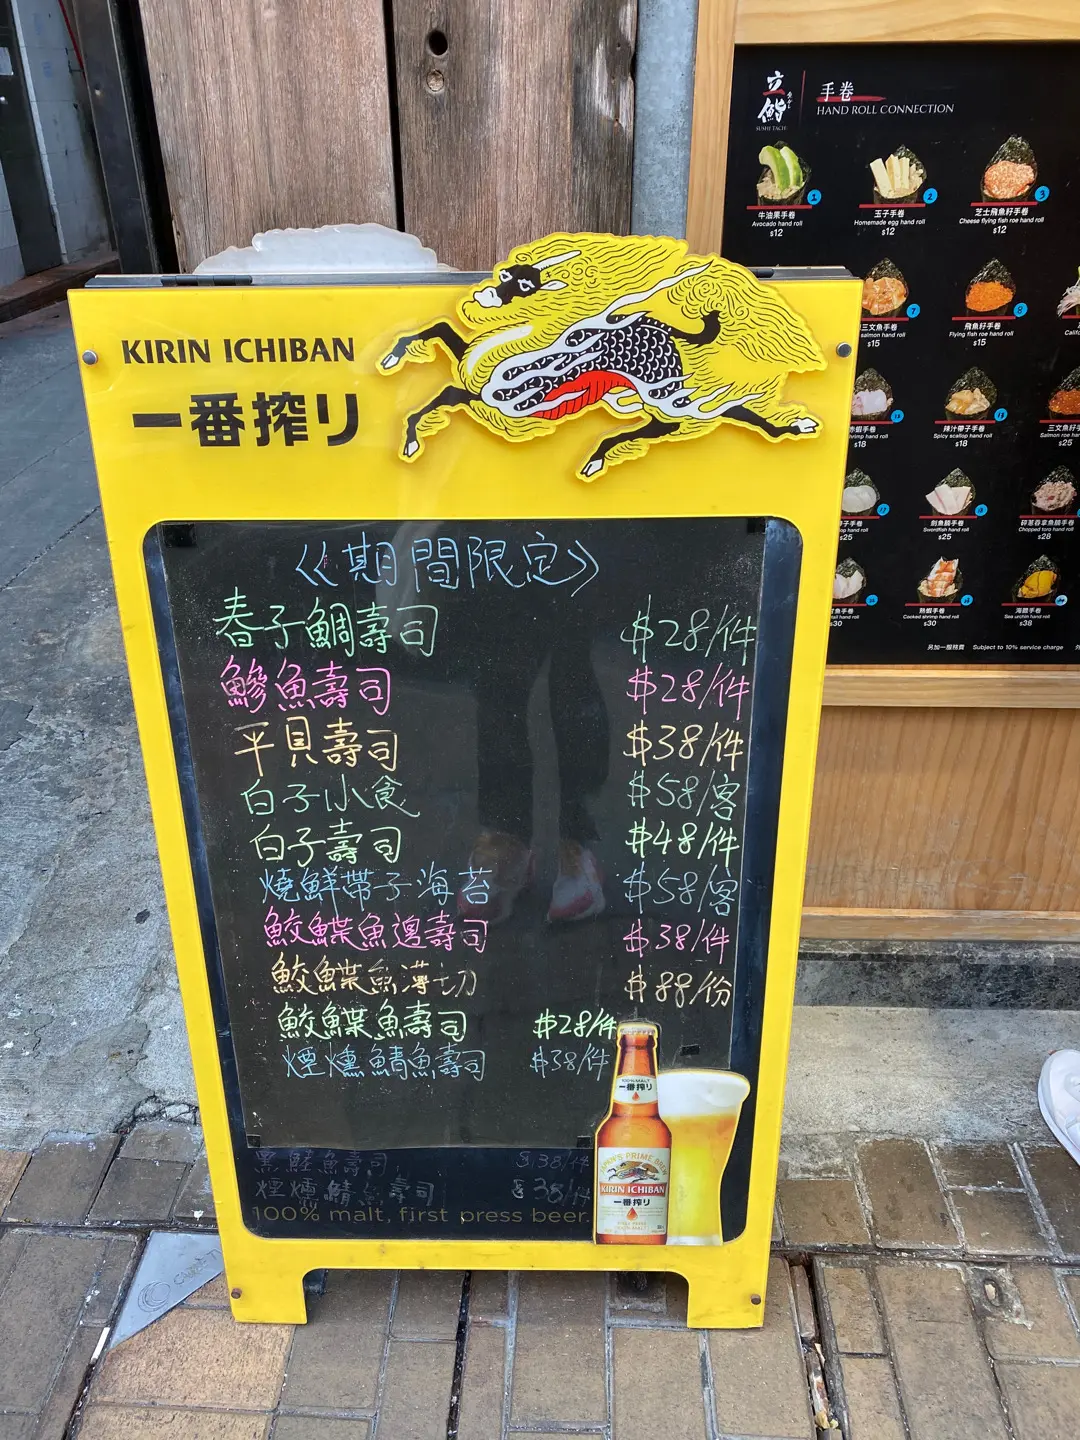 KIRIN ICHIBAN
一番搾り
《期間限定》
春子鯛壽司 $28/件
鰺魚壽司 $28/件
平貝壽司 $38/件
白子小食 $58/客
白子壽司 $48/件
燒鮮帶子海苔 $58/客
鮫鰈魚邊壽司 $38/件
鮫鰈魚薄切 $88/份
鮫鰈魚壽司 $28/件
煙燻鯖魚壽司 $38/件
魚壽司 $38/件
煙燻鯖 壽司 $38/件
100% malt, first press beer.
一番搾り
KIRIN ICHIBAN
一番搾り
立鮨
SUSHI TACHI
手卷
HAND ROLL CONNECTION
1
2
3
牛油果手卷
Avocado hand roll
$12
玉子手卷
Homemade egg hand roll
$12
芝士飛魚籽手卷
Cheese flying fish roe hand roll
$12
7
8
三文魚手卷
salmon hand roll
$15
飛魚籽手卷
Flying fish roe hand roll
$15
hand roll
$18
辣汁帶子手卷
Spicy scallop hand roll
$18
三文魚籽手
Salmon roe har
$25
hand roll
$25
劍魚腩手卷
Swordfish hand roll
$25
碎蔥吞拿魚腩手卷
Chopped toro hand roll
$28
hand roll
$30
熟蝦手卷
Cooked shrimp hand roll
$30
海膽手卷
Sea urchin hand roll
$38
另加一服務費 Subject to 10% service charge